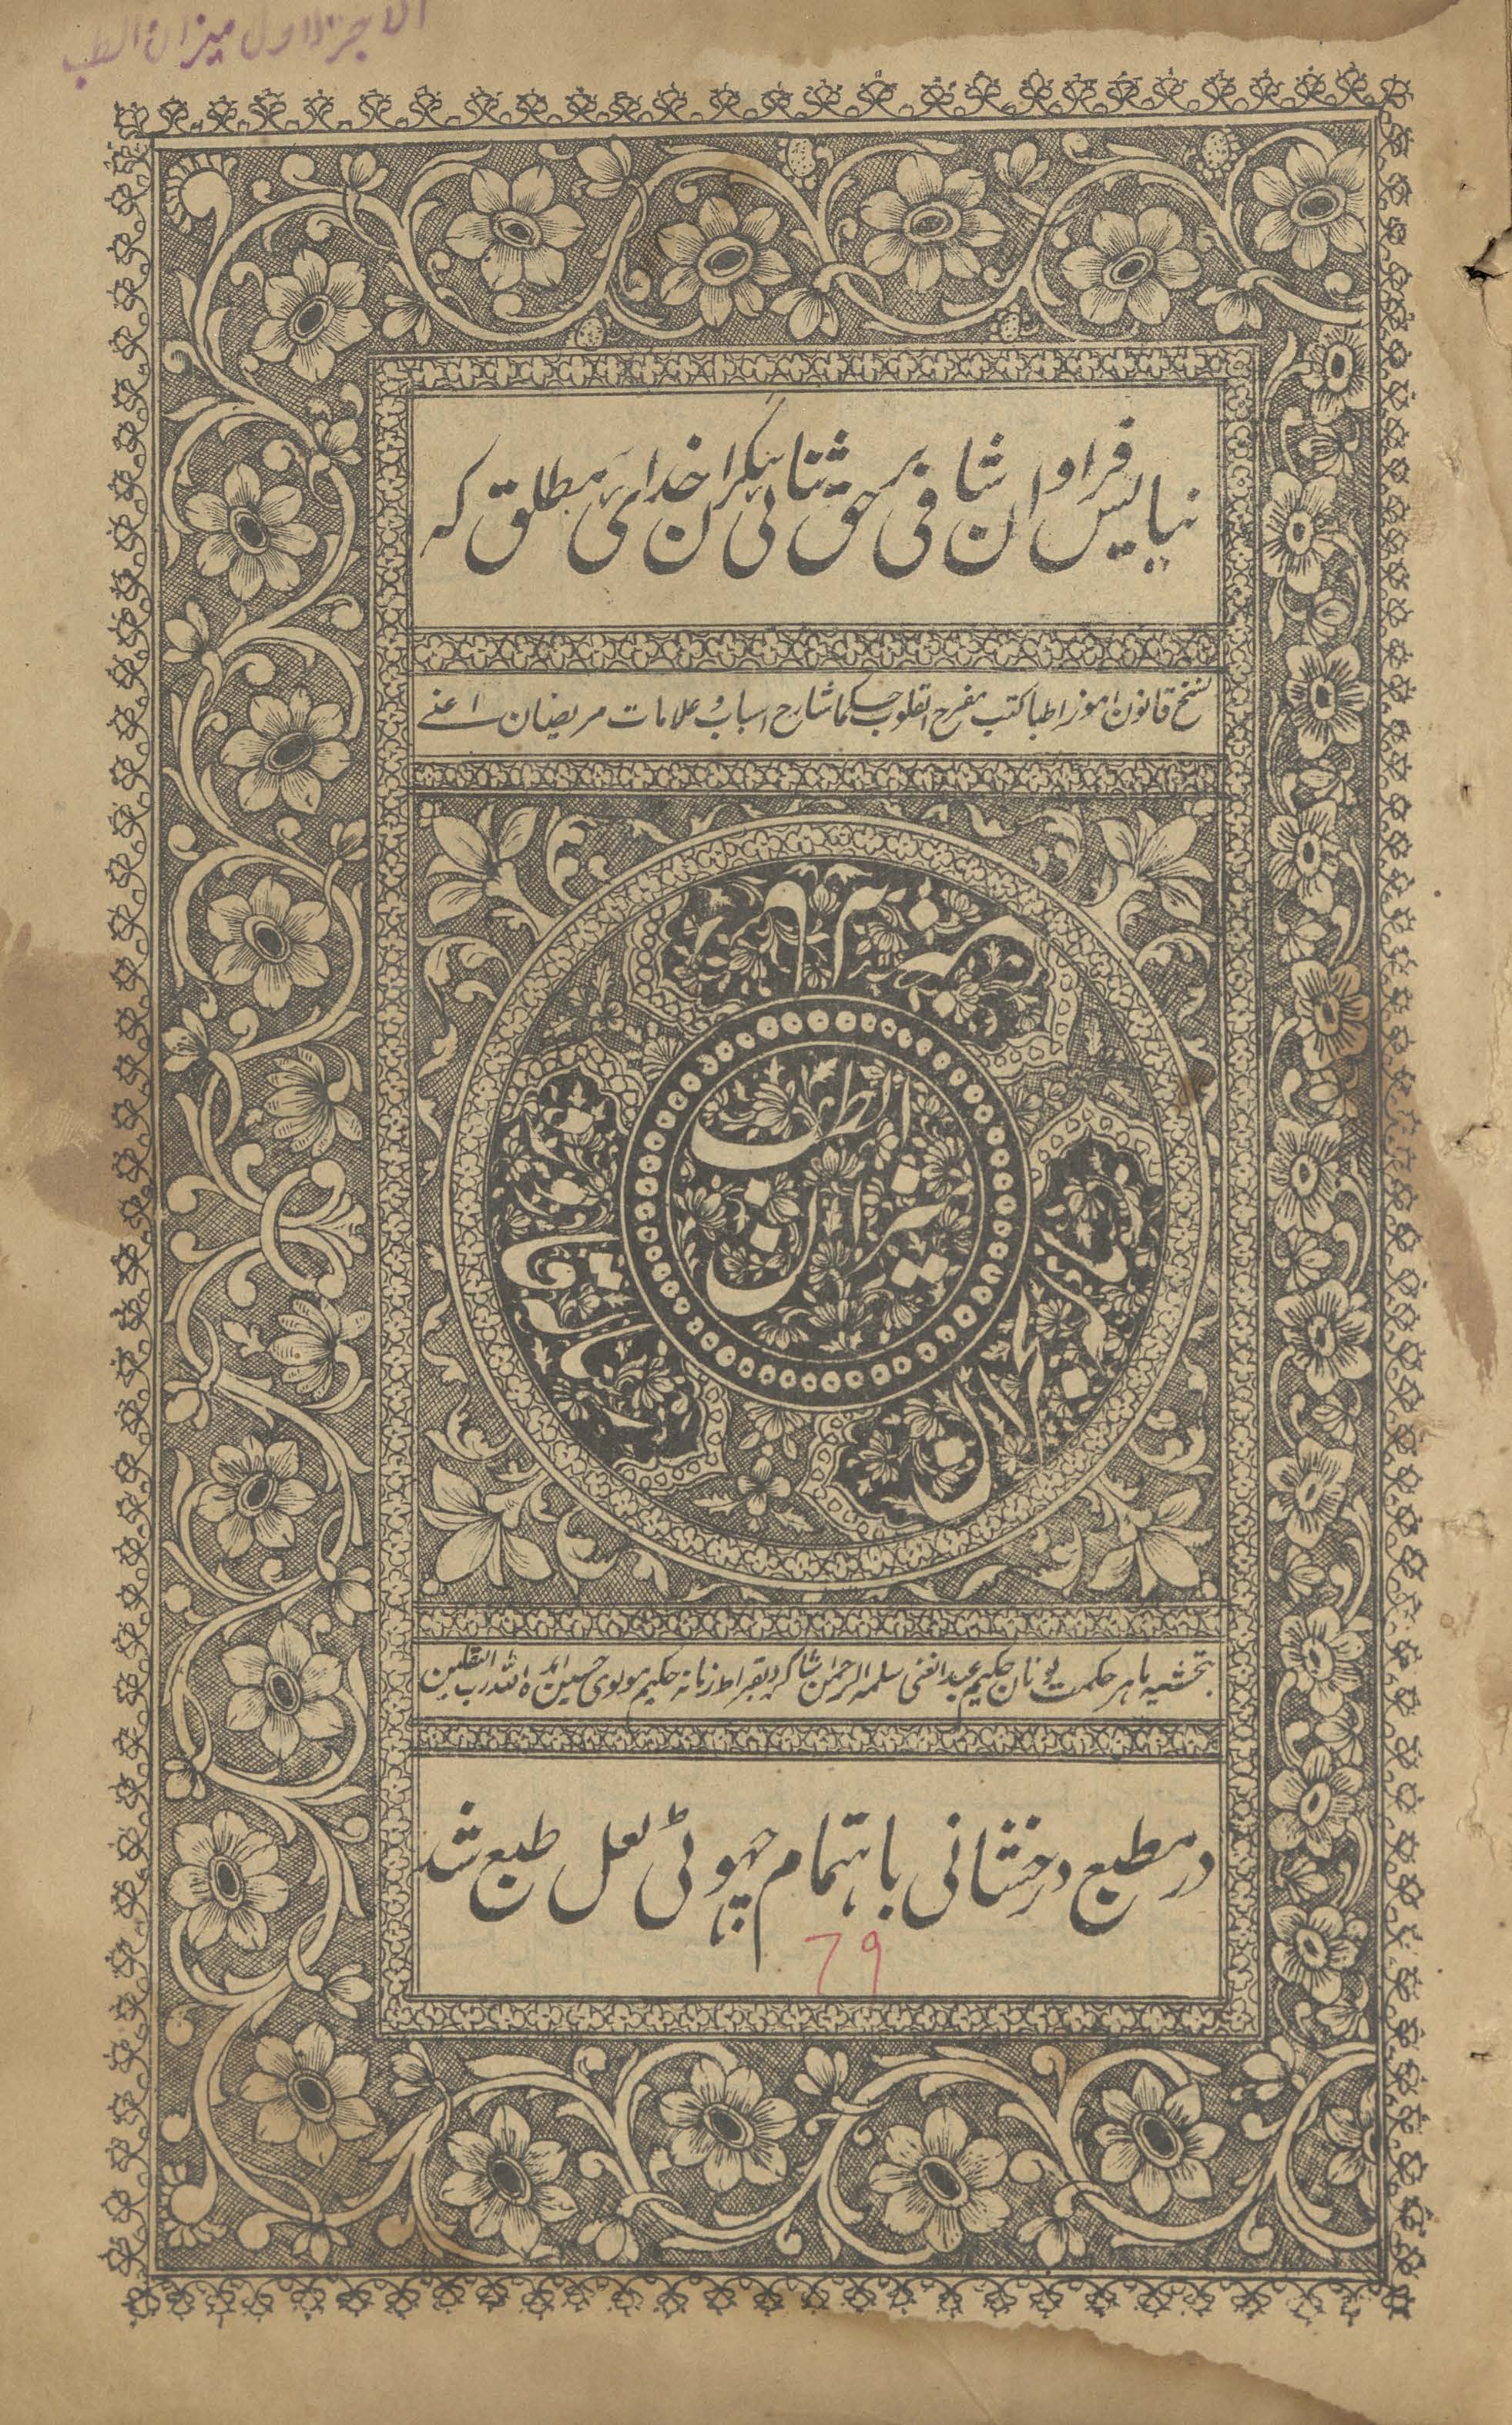 الاجزلاول میزان الطب
نیایش فراوان شافی برحق ثنای بیکران خدای مطلق که
نسخ قانون آموز اطبا کتب مفرح القلوب حکما شارح اسباب و علامات مریضان اعنے
میزان الطب
بتحشیه ماهر حکمت یونان حکیم عبد الغنی سلمه الرحمن شاگرد بقراط زمانه حکیم مولوی حسین
در مطبع درخشانی باهتمام چهوٹی لعل طبع شد
79